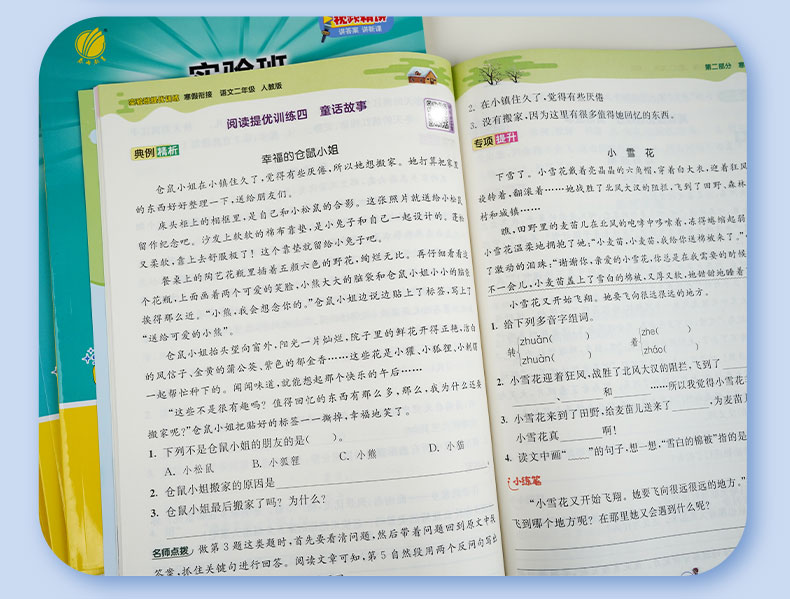 春雨教育
实验班
视频精讲
讲答案 讲新课
实验班提优训练 寒假衔接 语文二年级 人教版
阅读提优训练四 童话故事
典例精析
幸福的仓鼠小姐
仓鼠小姐在小镇住久了,觉得有些厌倦,所以她想搬家。她打算把家里
的东西好好整理一下,送给朋友们。
床头柜上的相框里,是自己和小松鼠的合影。这张照片就送给小松鼠
留作纪念吧。沙发上软软的棉布靠垫,是小兔子和自己一起设计的。蓬松
又柔软,靠上去舒服极了!这个靠垫就留给小兔子吧。
餐桌上的陶艺花瓶里插着五颜六色的野花,绚烂无比。再仔细看看这
个花瓶,上面画着两个可爱的笑脸,小熊大大的脑袋和仓鼠小姐小小的脑袋
挨得那么近。“小熊,我会想念你的。”仓鼠小姐边说边贴上了标签,写上了
“送给可爱的小熊”。
仓鼠小姐抬头望向窗外,阳光一片灿烂,院子里的鲜花开得正艳,洁白
的风信子、金黄的蒲公英、紫色的郁金香……这些花是小獾、小狐狸、小刺猬
一起帮忙种下的。闻闻味道,就能想起那个快乐的午后……
“这些不是很有趣吗?值得回忆的东西有那么多,那么,我为什么还要
搬家呢?”仓鼠小姐把贴好的标签一一撕掉,幸福地笑了。
1. 下列不是仓鼠小姐的朋友的是( )。
A. 小松鼠 B. 小狐狸 C. 小熊 D. 小猫
2. 仓鼠小姐搬家的原因是 。
3. 仓鼠小姐最后搬家了吗?为什么?
名师点拨 做第3题这类题时,首先要看清问题,然后带着问题回到原文中找
答案,抓住关键句进行回答。阅读文章可知,第5自然段用两个反问句写出
第二部分 寒
2. 在小镇住久了,觉得有些厌倦
3. 没有搬家,因为这里有很多值得她回忆的东西。
专项提升
小雪花
下雪了。小雪花戴着亮晶晶的六角帽,穿着白大衣,迎着狂风
旋转着,翻滚着……她战胜了北风大汉的阻拦,飞到了田野、森林
村和城镇……
瞧,田野里的麦苗儿在北风的咆哮中哆嗦着,冻得蜷缩起弱
小雪花温柔地拥抱了她:“小麦苗,小麦苗,我给你送棉被来了。”
了激动的泪珠:“谢谢你,亲爱的小雪花,你总是在我需要的时候
不一会儿,小麦苗盖上了雪白的棉被,又厚又软,她甜甜地睡着了
小雪花又开始飞翔。她要飞向很远很远的地方。
1. 给下列多音字组词。
转 zhuǎn( ) zhuàn( ) 着 zhe( ) zháo( )
2. 小雪花迎着狂风,战胜了北风大汉的阻拦,飞到了
、 和 ……所以我觉得小雪花
3. 小雪花来到了田野,给麦苗儿送来了 ,为麦苗儿
小雪花真 啊!
4. 读文中画“ ”的句子,想一想,“雪白的棉被”指的是
小练笔
“小雪花又开始飞翔。她要飞向很远很远的地方。”
飞到哪个地方呢?在那里她又会遇到什么呢?